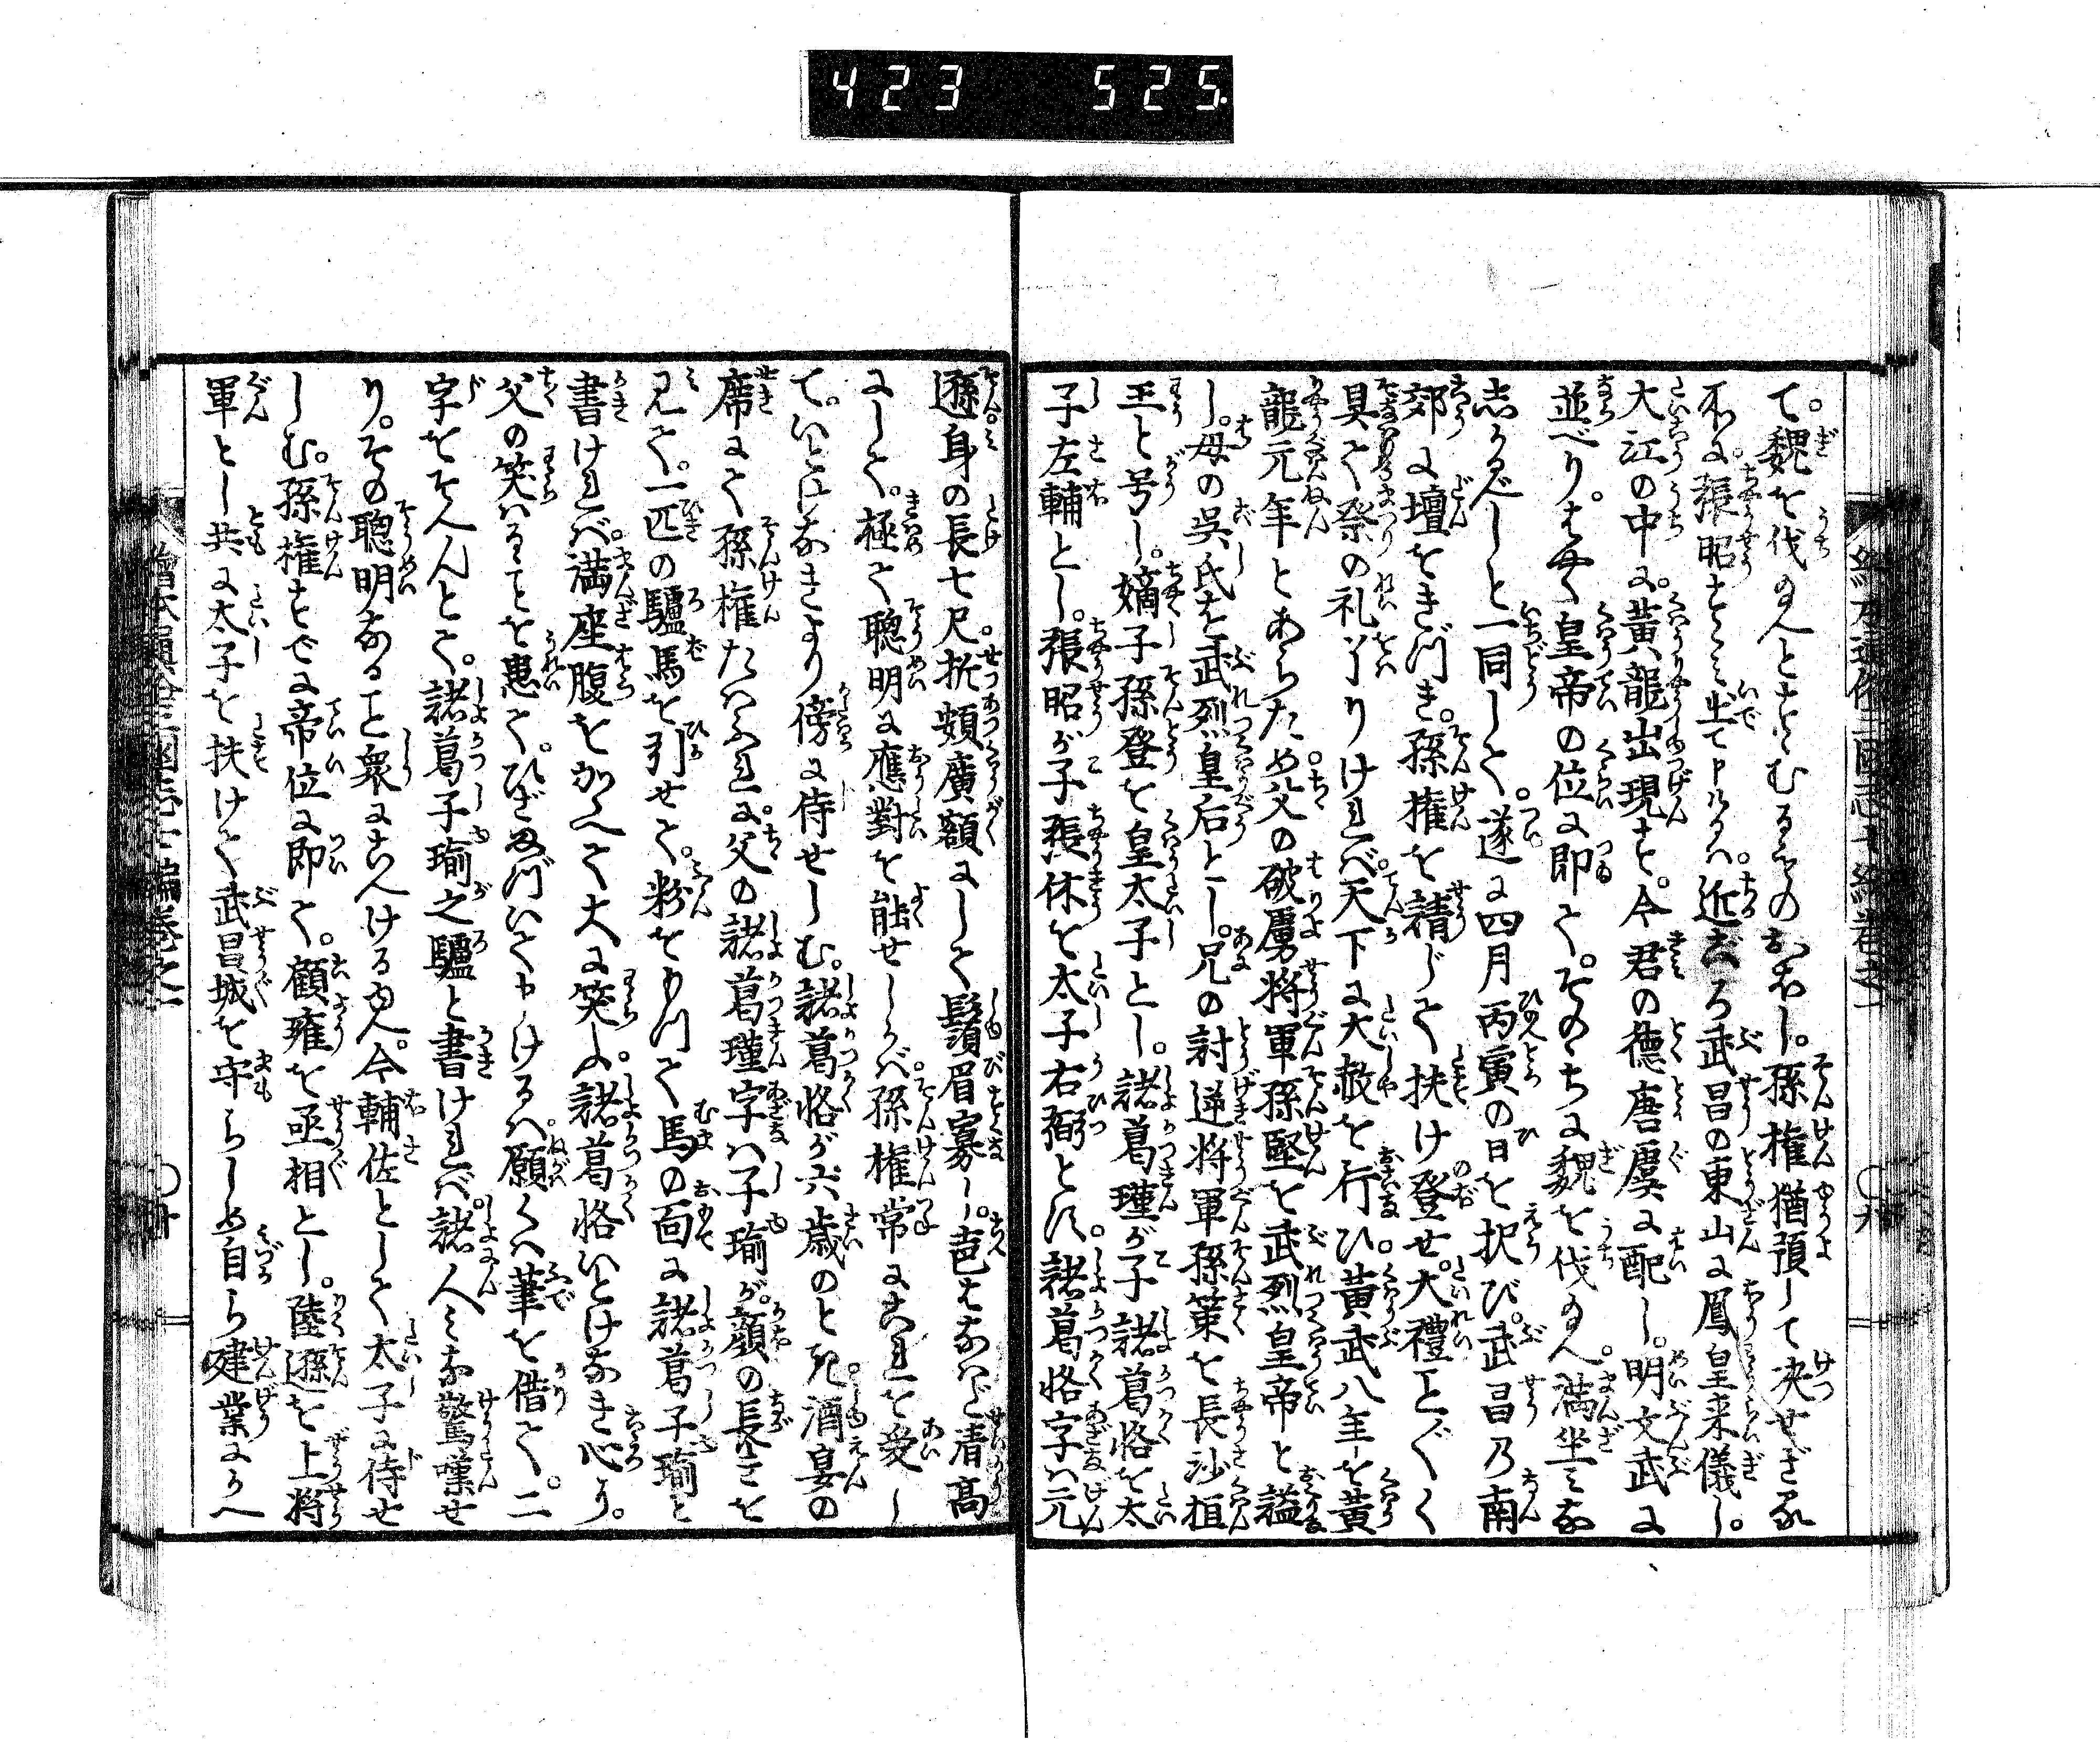 423 525.
て。魏を伐給へとすゝむるものおほし。孫権猶預して决せざる
不に張昭すゝみ出て申ける八。近ごろ武昌の東山に鳳皇来儀し。
大江の中に。黄龍出現す。今君の徳唐虞に配し。明文武に
並べり。はやく皇帝の位に即て。そのゝちに魏を伐給へ。満坐みな
志かるべしと一同して。遂に四月丙寅の日を択び。武昌乃南
郊に壇をきづき。孫権を請じて扶け登せ。大禮ことごとく
具て祭の礼了りければ。天下に大赦を行ひ。黄武八年を黄
龍元年とあらため。父の破虜将軍孫堅を武烈皇帝と謚
し。母の呉氏を武烈皇后とし。兄の討逆将軍孫策を長沙桓
王と号し。嫡子孫登を皇太子とし。諸葛瑾が子諸葛恪を太
子左輔とし。張昭が子張休を太子右弼とす。諸葛恪字ハ元
遜身の長七尺。折頞廣額にして鬚眉寡し。声はなハだ清高
にして。極て聰明に應對を能せしかバ。孫権常にこれを愛し
て。いとけなきより傍に侍せしむ。諸葛恪が六歳のとき。酒宴の
席にて孫権たハふれに。父の諸葛瑾字ハ子瑜が。顔の長きを
見て。一匹の驢馬を引せて。粉をもつて馬の面に諸葛子瑜と
書けれバ。満座腹をかゝへて大に笑ふ。諸葛恪いとけなき心より。
父の笑ハるゝことを患て。ひざまづいて申けるハ。願くハ筆を借て。二
字をそへんとて。諸葛子瑜之驢と書けれバ。諸人みな驚嘆せ
り。その聰明なること衆にこへける由へ。今輔佐として太子に侍せ
しむ。孫権すでに帝位に即て。顧雍を丞相とし。陸遜を上將
軍とし共に太子を扶けて武昌城を守らしめ自ら建業にかへ